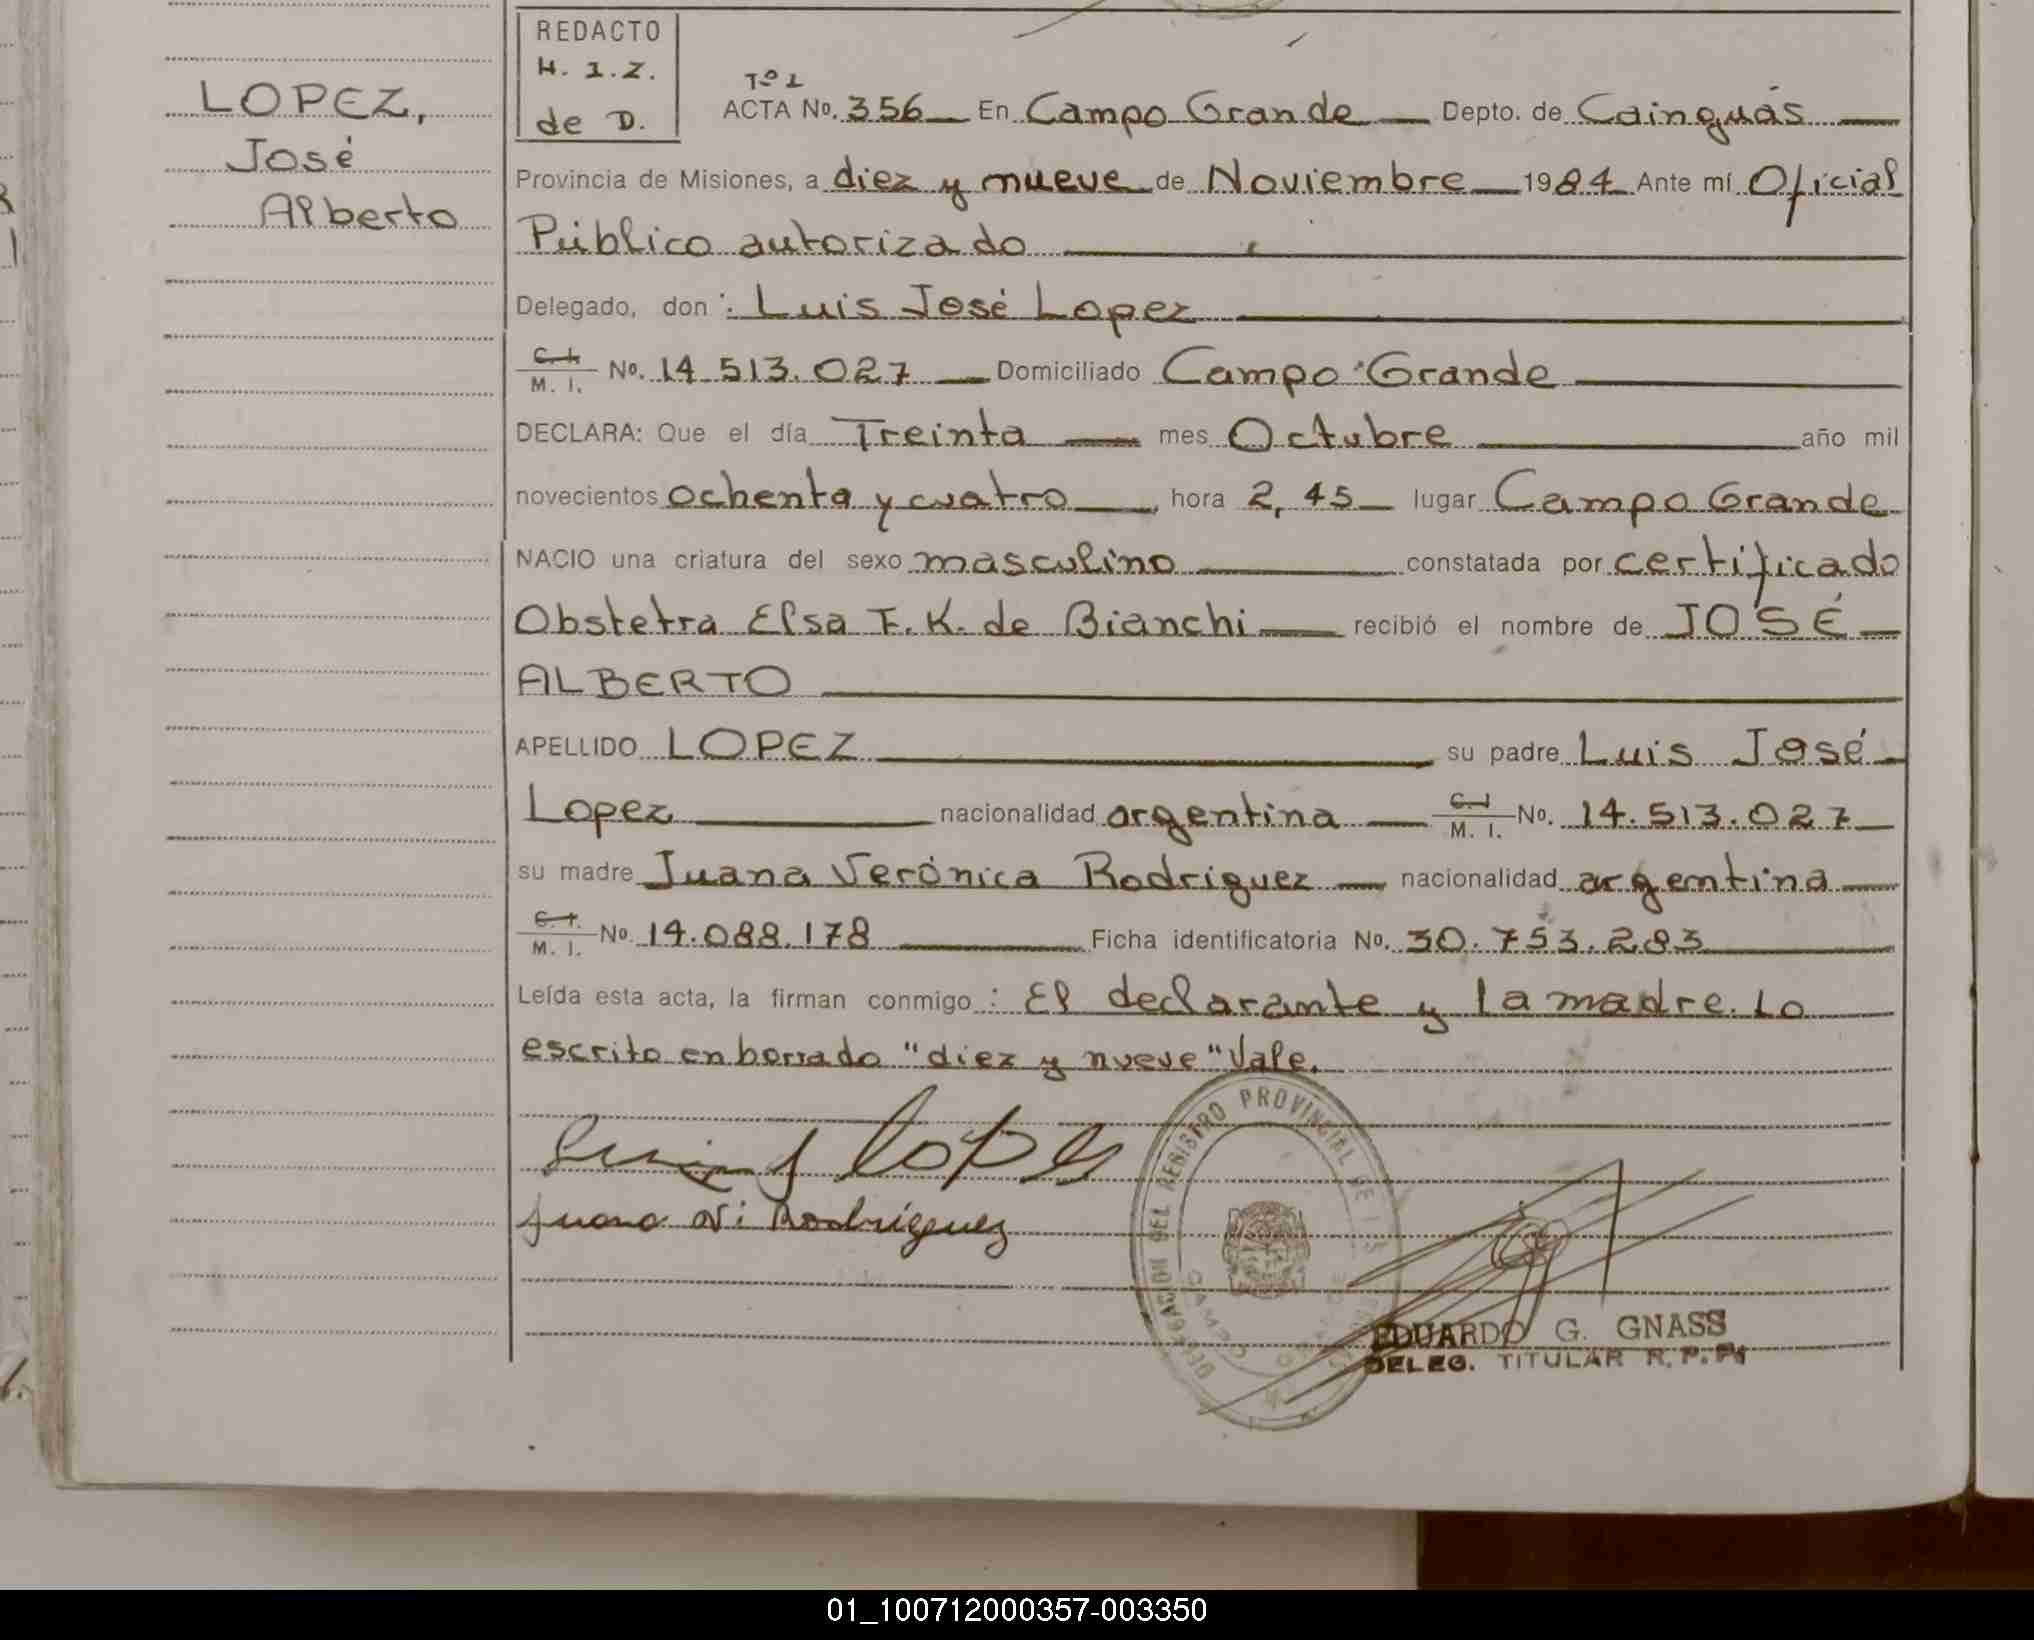 LOPEZ,
José
Alberto
REDACTO
H. I. Z.
de D.
Tº 1
ACTA No. 356 En Campo Grande Depto. de Cainguás
Provincia de Misiones, a diez y nueve de Noviembre 1984 Ante mí Oficial
Público autorizado
Delegado, don: Luis José Lopez
C. I. M. I. No. 14.513.027 Domiciliado Campo Grande
DECLARA: Que el día Treinta mes Octubre año mil
novecientos ochenta y cuatro, hora 2,45 lugar Campo Grande
NACIO una criatura del sexo masculino constatada por certificado
Obstetra Elsa F. K. de Bianchi recibió el nombre de JOSÉ
ALBERTO
APELLIDO LOPEZ su padre Luis José
Lopez nacionalidad argentina C. I. M. I. No. 14.513.027
su madre Juana Verónica Rodriguez nacionalidad argentina
C. I. M. I. No. 14.088.178 Ficha identificatoria No. 30.753.283
Leída esta acta, la firman conmigo: El declarante y la madre. Lo
escrito en borrado "diez y nueve" Vale.
Luis J Lopez
Juana V. Rodriguez
DELEGACION DEL REGISTRO PROVINCIAL DE LAS
CAMPO GRANDE
EDUARDO G. GNASS
DELEG. TITULAR R. P. P.
01_100712000357-003350